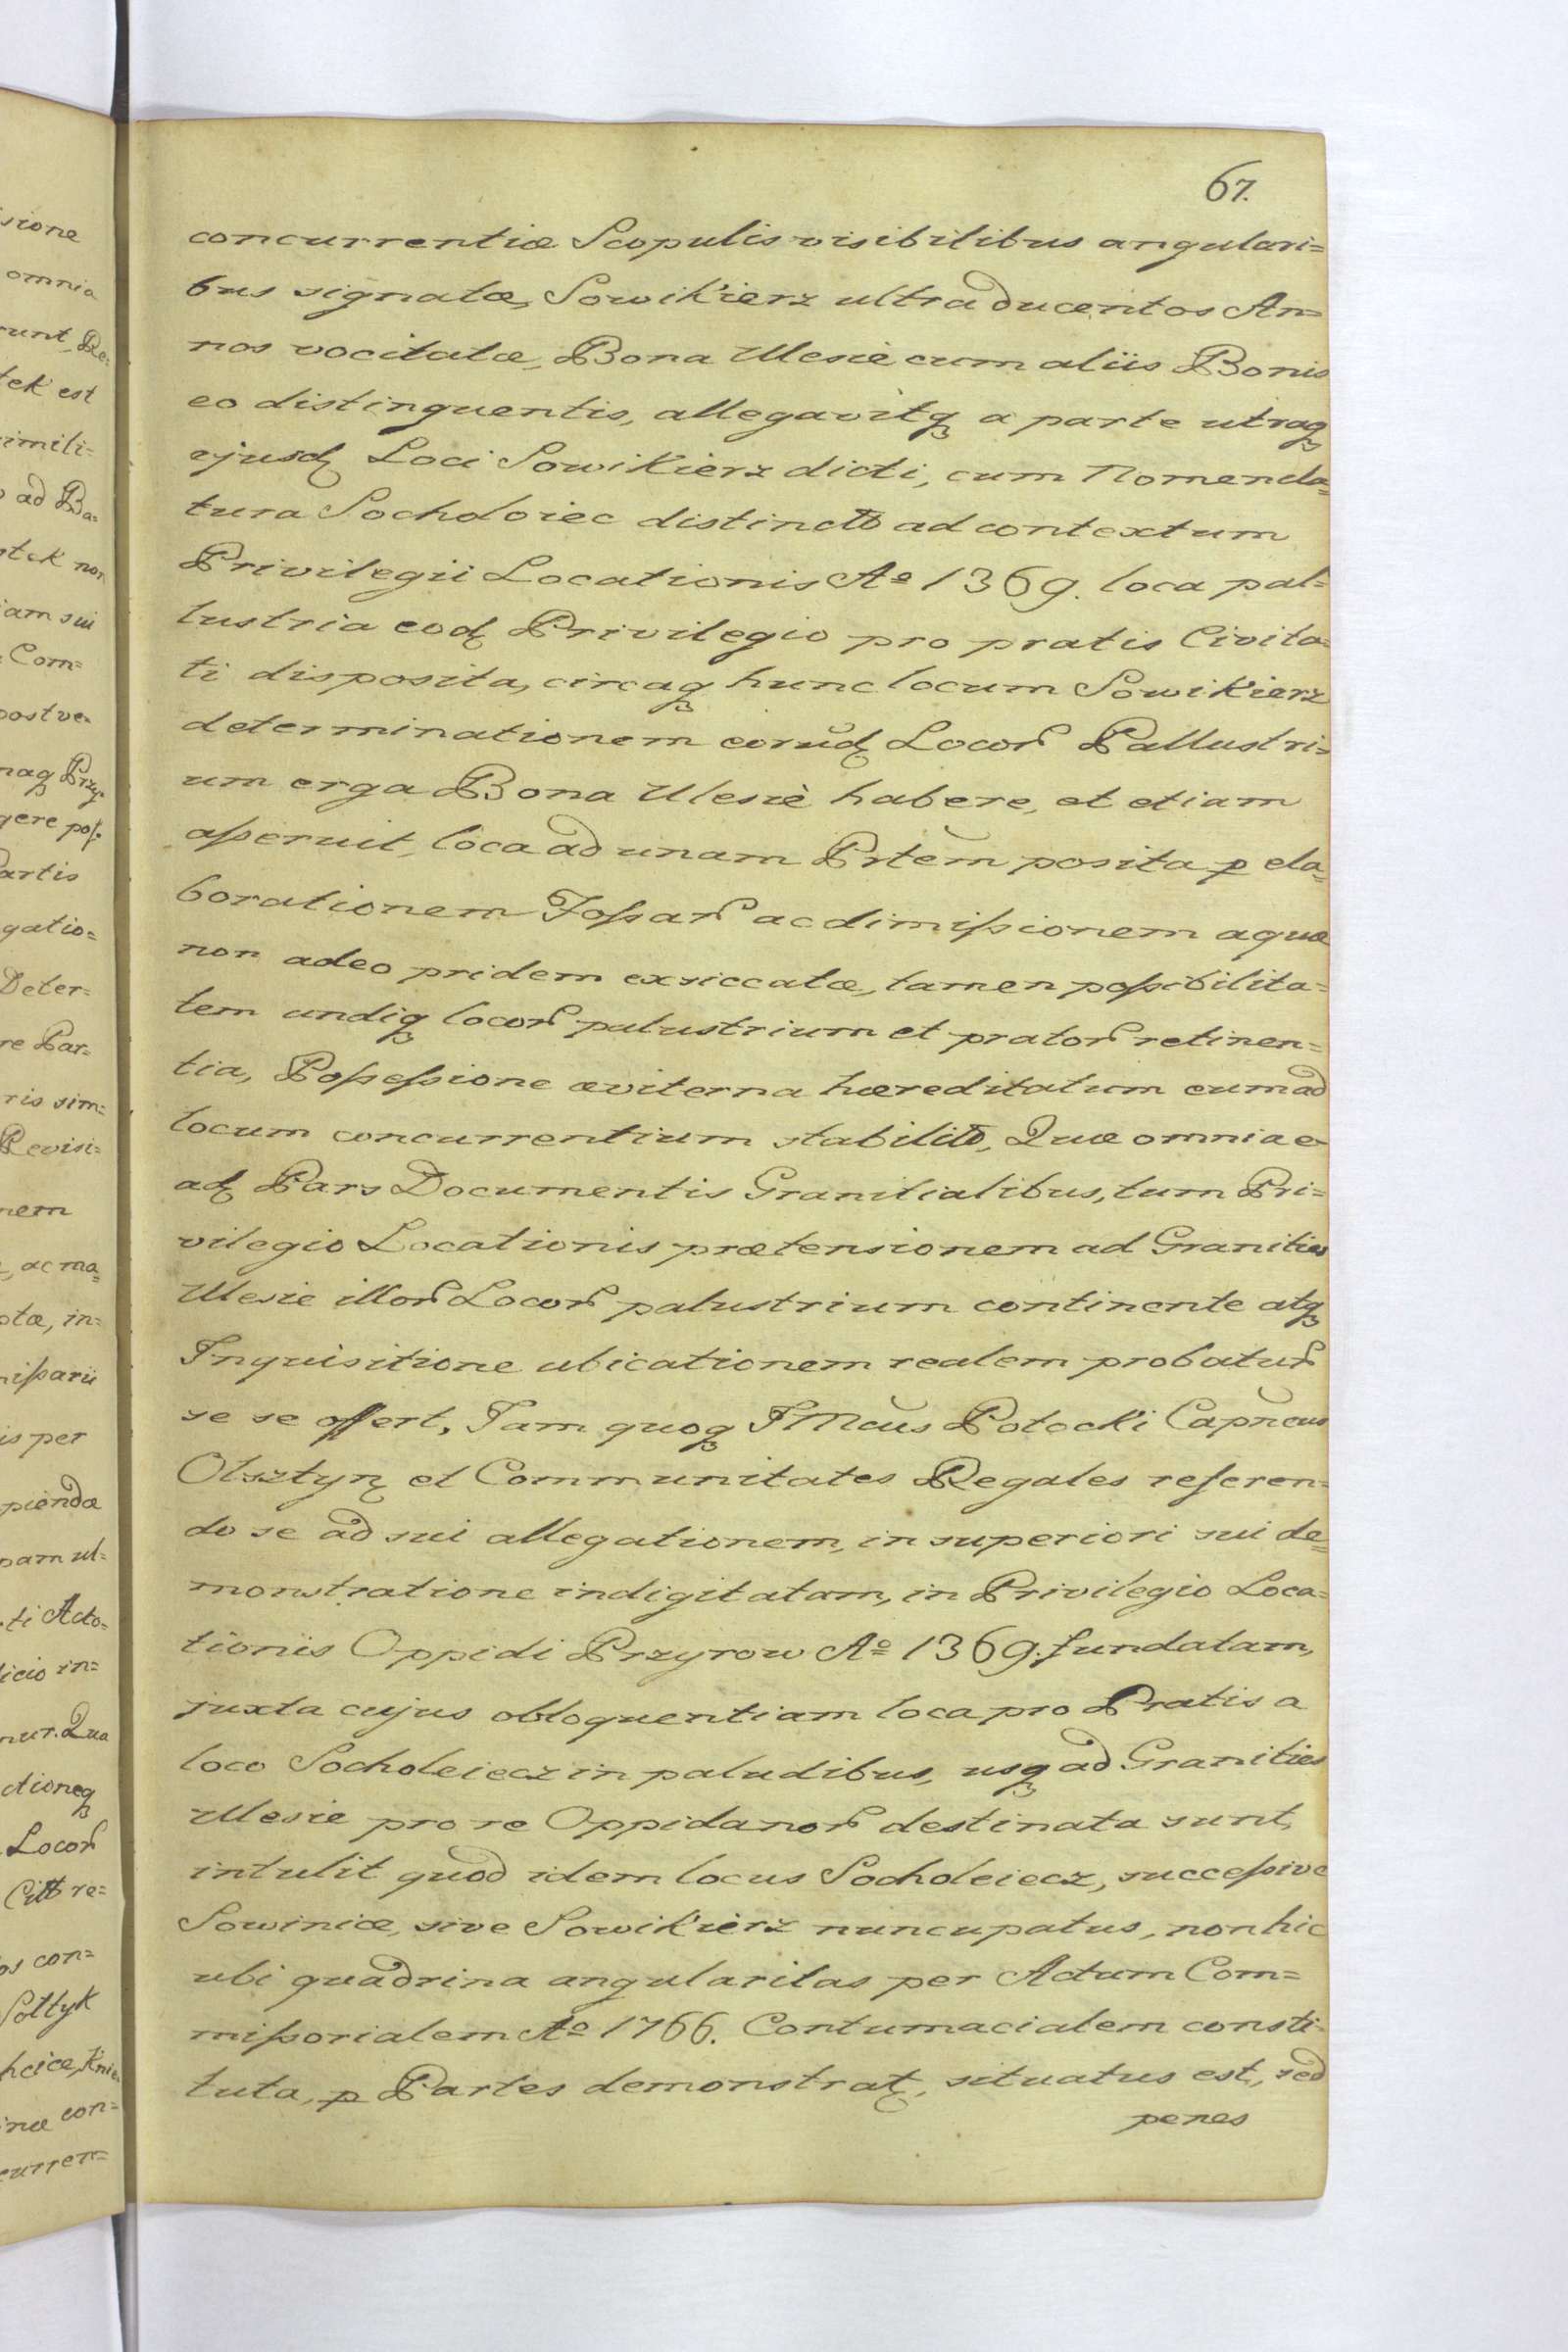 67.
concurrentiæ Scopulis visibilibus angulari=
bus signatæ, Sowikierz ultra ducentos An=
nos vocitatæ, Bona Ulesie cum aliis Bonis
eo distinguentis, allegavitq a parte utraq
ejusd Loci Sowikierz dicti, cum Nomencla=
tura Socholoiec distincto ad contextum
Privilegii Locationis Aº 1369. loca pal=
lustria eod Privilegio pro pratis Civita=
ti disposita, circaq hunc locum Sowikierz
determinationem eorūd Locor Pallustri=
um erga Bona Ulesie habere, et etiam
asseruit, loca ad unam Prtem posita p ela=
borationem Fossar ac dimissionem aquæ
non adeo pridem exsiccatæ, tamen possibilita=
tem undiq locor palustrium et prator retinen=
tia, Possessione æviterna hæreditatum eum ad
locum concurrentium stabilito, Quæ omnia e=
ad Pars Documentis Granitialibus, tum Pri=
vilegio Locationis prætensionem ad Granities
Ulesie illor Locor palustrium continente atq
Inquisitione ubicationem realem probatur
se se offert, Jam quoq JMcus Potocki Capneus
Olsztyn et Communitates Regales referen=
do se ad sui allegationem, in superiori sui de=
monstratione indigitatam, in Privilegio Loca=
tionis Oppidi Przyrow Aº 1369. fundatam,
juxta cujus obloquentiam loca pro Pratis a
loco Socholeiecz in paludibus, usq ad Granities
Ulesie pro re Oppidanor destinata sunt,
intulit quod idem locus Socholeiecz, successive
Sowinice, sive Sowikierz nuncupatus, non hic
ubi quadrina angularitas per Actum Com=
missorialem Aº 1766. Contumacialem consti=
tuta, p Partes demonstrat, situatus est, sed
penes
sione
omnia
runt, Re=
tek est
simili=
ad Ba=
tek non
iam sui
Com=
post ve=
naq Przy=
gere pos=
Partis
gatio=
Deter=
re Par=
ris sim=
Revisi=
nem
, ac ma=
otæ, in=
missarii
is per
piendæ
pam ul=
ti Acto=
icio in=
nur. Qua
ctioneq
Locor
Citt re=
os con=
Soltyk
hcice, Knie=
inæ con=
curren=